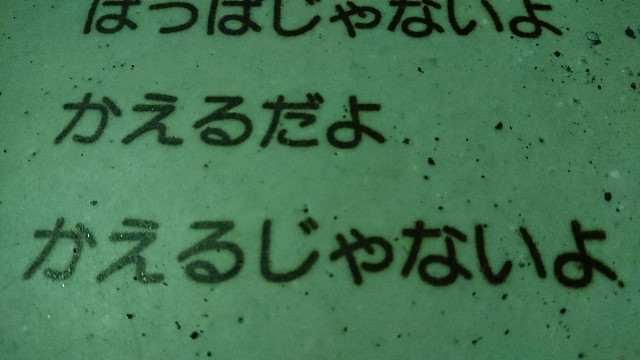 はっぱじゃないよ
かえるだよ
かえるじゃないよ